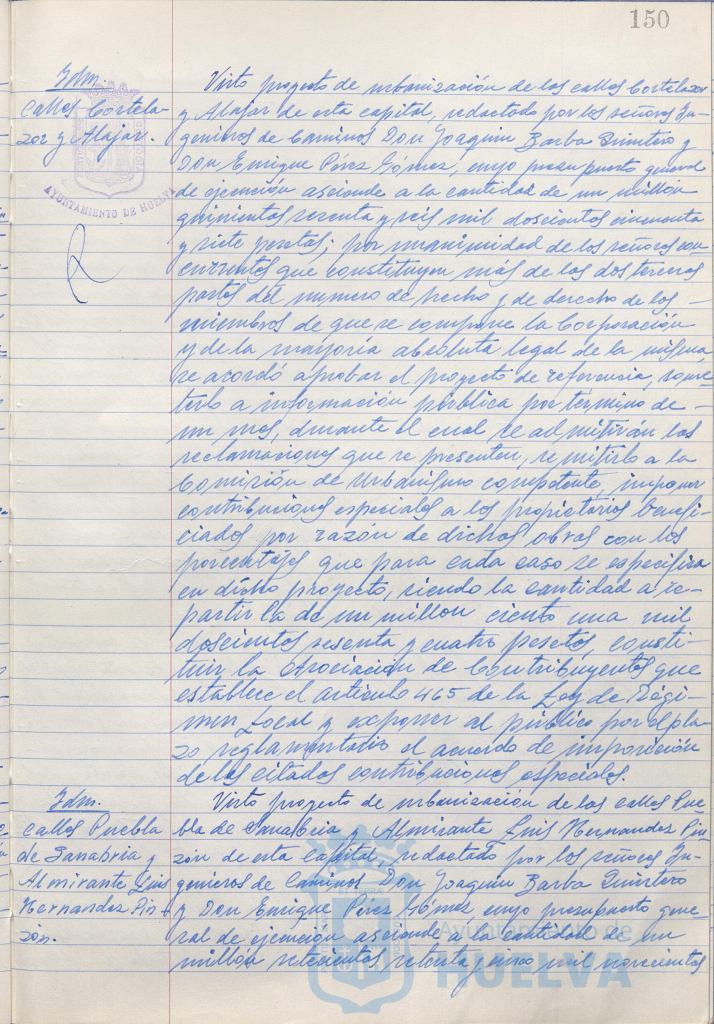 150
Idm.
calles Cortela-
zor y Alajar.
AYUNTAMIENTO DE HUELVA
Visto proyecto de urbanización de las calles Cortelazor
y Alajar de esta capital, redactado por los señores In-
genieros de Caminos Don Joaquin Barba Quintero y
Don Enrique Pérez Gómez, cuyo presupuesto general
de ejecución asciende a la cantidad de un millón
quinientas sesenta y seis mil doscientas cincuenta
y siete pesetas; por unanimidad de los señores con-
currentes que constituyen más de las dos terceras
partes del numero de hecho y de derecho de los -
miembros de que se compone la Corporación
y de la mayoría absoluta legal de la misma,
se acordó aprobar el proyecto de referencia, some-
terlo a información pública por término de -
un mes, durante el cual se admitirán las
reclamaciones que se presenten, remitirlo a la
Comisión de Urbanismo competente, imponer
contribuciones especiales a los propietarios benefi-
ciados por razón de dichas obras con los
porcentajes que para cada caso se especifica
en dicho proyecto, siendo la cantidad a re-
partir la de un millon ciento una mil
doscientas sesenta y cuatro pesetas, consti-
tuir la Asociación de Contribuyentes que
establece el articulo 465 de la Ley de Régi-
men Local y exponer al público por el pla-
zo reglamentario el acuerdo de imposición
de las citadas contribuciones especiales.
Idm.
calles Puebla
de Sanabria y
Almirante Luis
Hernandez Pin-
zón.
Visto proyecto de urbanización de las calles Pue-
bla de Sanabria y Almirante Luis Hernandez Pin-
zón de esta capital, redactado por los señores In-
genieros de Caminos Don Joaquin Barba Quintero
y Don Enrique Pérez Gómez, cuyo presupuesto gene-
ral de ejecución asciende a la cantidad de un
millón setecientas setenta y una mil novecientas
Ayuntamiento de
HUELVA